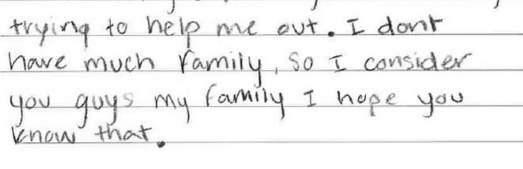 trying to help me out. I dont
have much family, so I consider
you guys my family I hope you
know that.